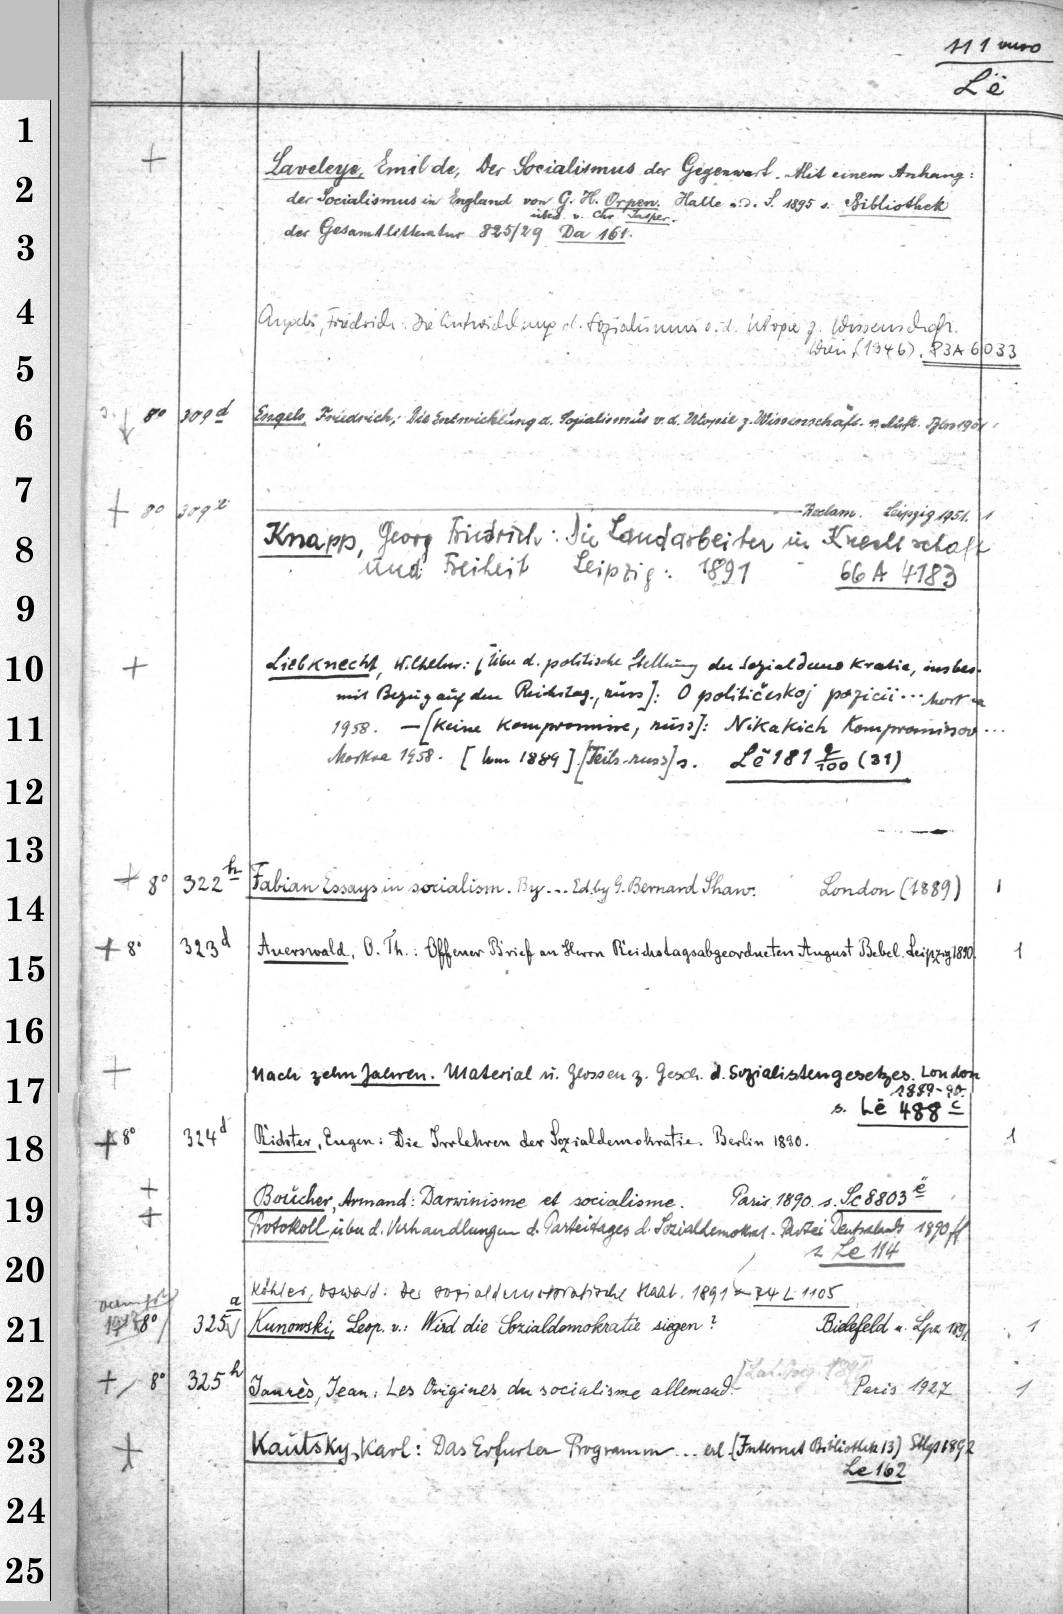 111
Lë
1
+
Laveleye, Emil de, Der Socialismus der Gegenwart. Mit einem Anhang:
2
der Socialismus in England von G. H. Orpen. Halle o. J. 1895 s. Bibliothek
übers. v. Chr. Jasper.
3
der Gesamtlitteratur 825/29 Da 161.
4
Engels, Friedrich: Die Entwicklung d. Sozialismus v. d. Utopie z. Wissenschaft.
5
Wien (1946). P3A 6033
6
8° 309 d Engels, Friedrich: Die Entwicklung d. Sozialismus v. d. Utopie z. Wissenschaft. Aufl. Bln 1901
7
+ 8° 309 Reclam. Leipzig 1951. 1
8
Knapp, Georg Friedrich: Die Landarbeiter in Knechtschaft
und Freiheit Leipzig: 1891 66 A 4183
9
10
+ Liebknecht, Wilhelm: [Über d. politische Stellung der Sozialdemokratie, insbes.
mit Bezug auf den Reichstag, russ]: O političeskoj pozicii... Moskva
11
1958. — [Keine Kompromisse, russ]: Nikakich Kompromissov...
Moskva 1958. [um 1889] [Teils. russ] s. Lë 181 q/100 (31)
12
13
14
+ 8° 322 h Fabian Essays in socialism. By... Ed. by G. Bernard Shaw. London (1889) 1
15
+ 8° 323 d Auerswald, O. Th.: Offener Brief an Herrn Reichstagsabgeordneten August Bebel. Leipzig 1890. 1
16
17
+ Nach zehn Jahren. Material u. Glossen z. Gesch. d. Sozialistengesetzes. London
1889-90.
s. Lë 488 c
18
+ 8° 324 d Richter, Eugen: Die Irrlehren der Sozialdemokratie. Berlin 1890. 1
19
+ Boucher, Armand: Darwinisme et socialisme. Paris 1890. s. Sc 8803 ë
+ Protokoll über d. Verhandlungen d. Parteitages d. Sozialdemokrat. Partei Deutschlands 1890 ff
s. Le 114
20
Köhler, Oswald: Der sozialdemokratische Staat. 1891 74 L 1105
21
8° 325 a Kunowski, Leop. v.: Wird die Sozialdemokratie siegen? Bielefeld u. Lpz. 1891 1
22
+ 8° 325 h Jaurès, Jean: Les Origines du socialisme allemand. Paris 1927 1
23
+ Kautsky, Karl: Das Erfurter Programm... erl. (Internat Bibliothek 13) Sttgt 1892
Le 162
24
25